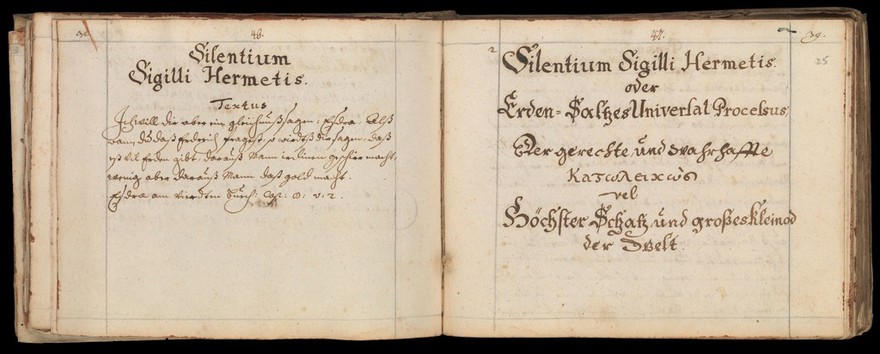 46.
Silentium
Sigilli Hermetis.
Textus
Ich will dir aber ein gleichnuß sagen: Esdra. Alß
wann dŭ daß Erderich fragest, so wirdtß dir sagen, daß
eß vil Erden gibt, darauß Mann irdinen geschier macht,
wenig aber darauß Mann daß gold macht.
Esdra am vierdten bŭch: Cap: 8: v: 2.
47.
39.
25
2
Silentium Sigilli Hermetis.
oder
Erden-Saltzes Universal Processus
Der gerechte ŭnd wahrhaffte
Κατωλεικως
vel
Höchster Schatz, ŭnd großes Kleinod
der Welt.